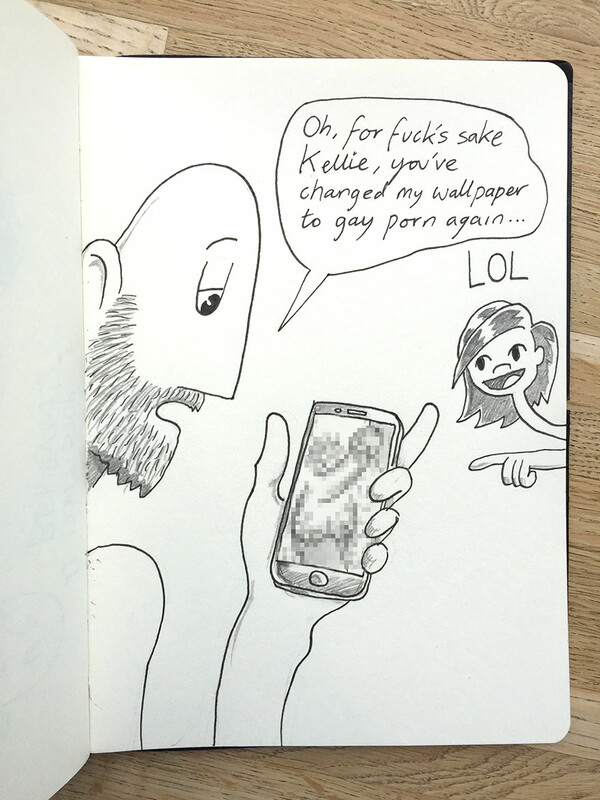 Oh, for fuck's sake
Kellie, you've
changed my wallpaper
to gay porn again...
LOL